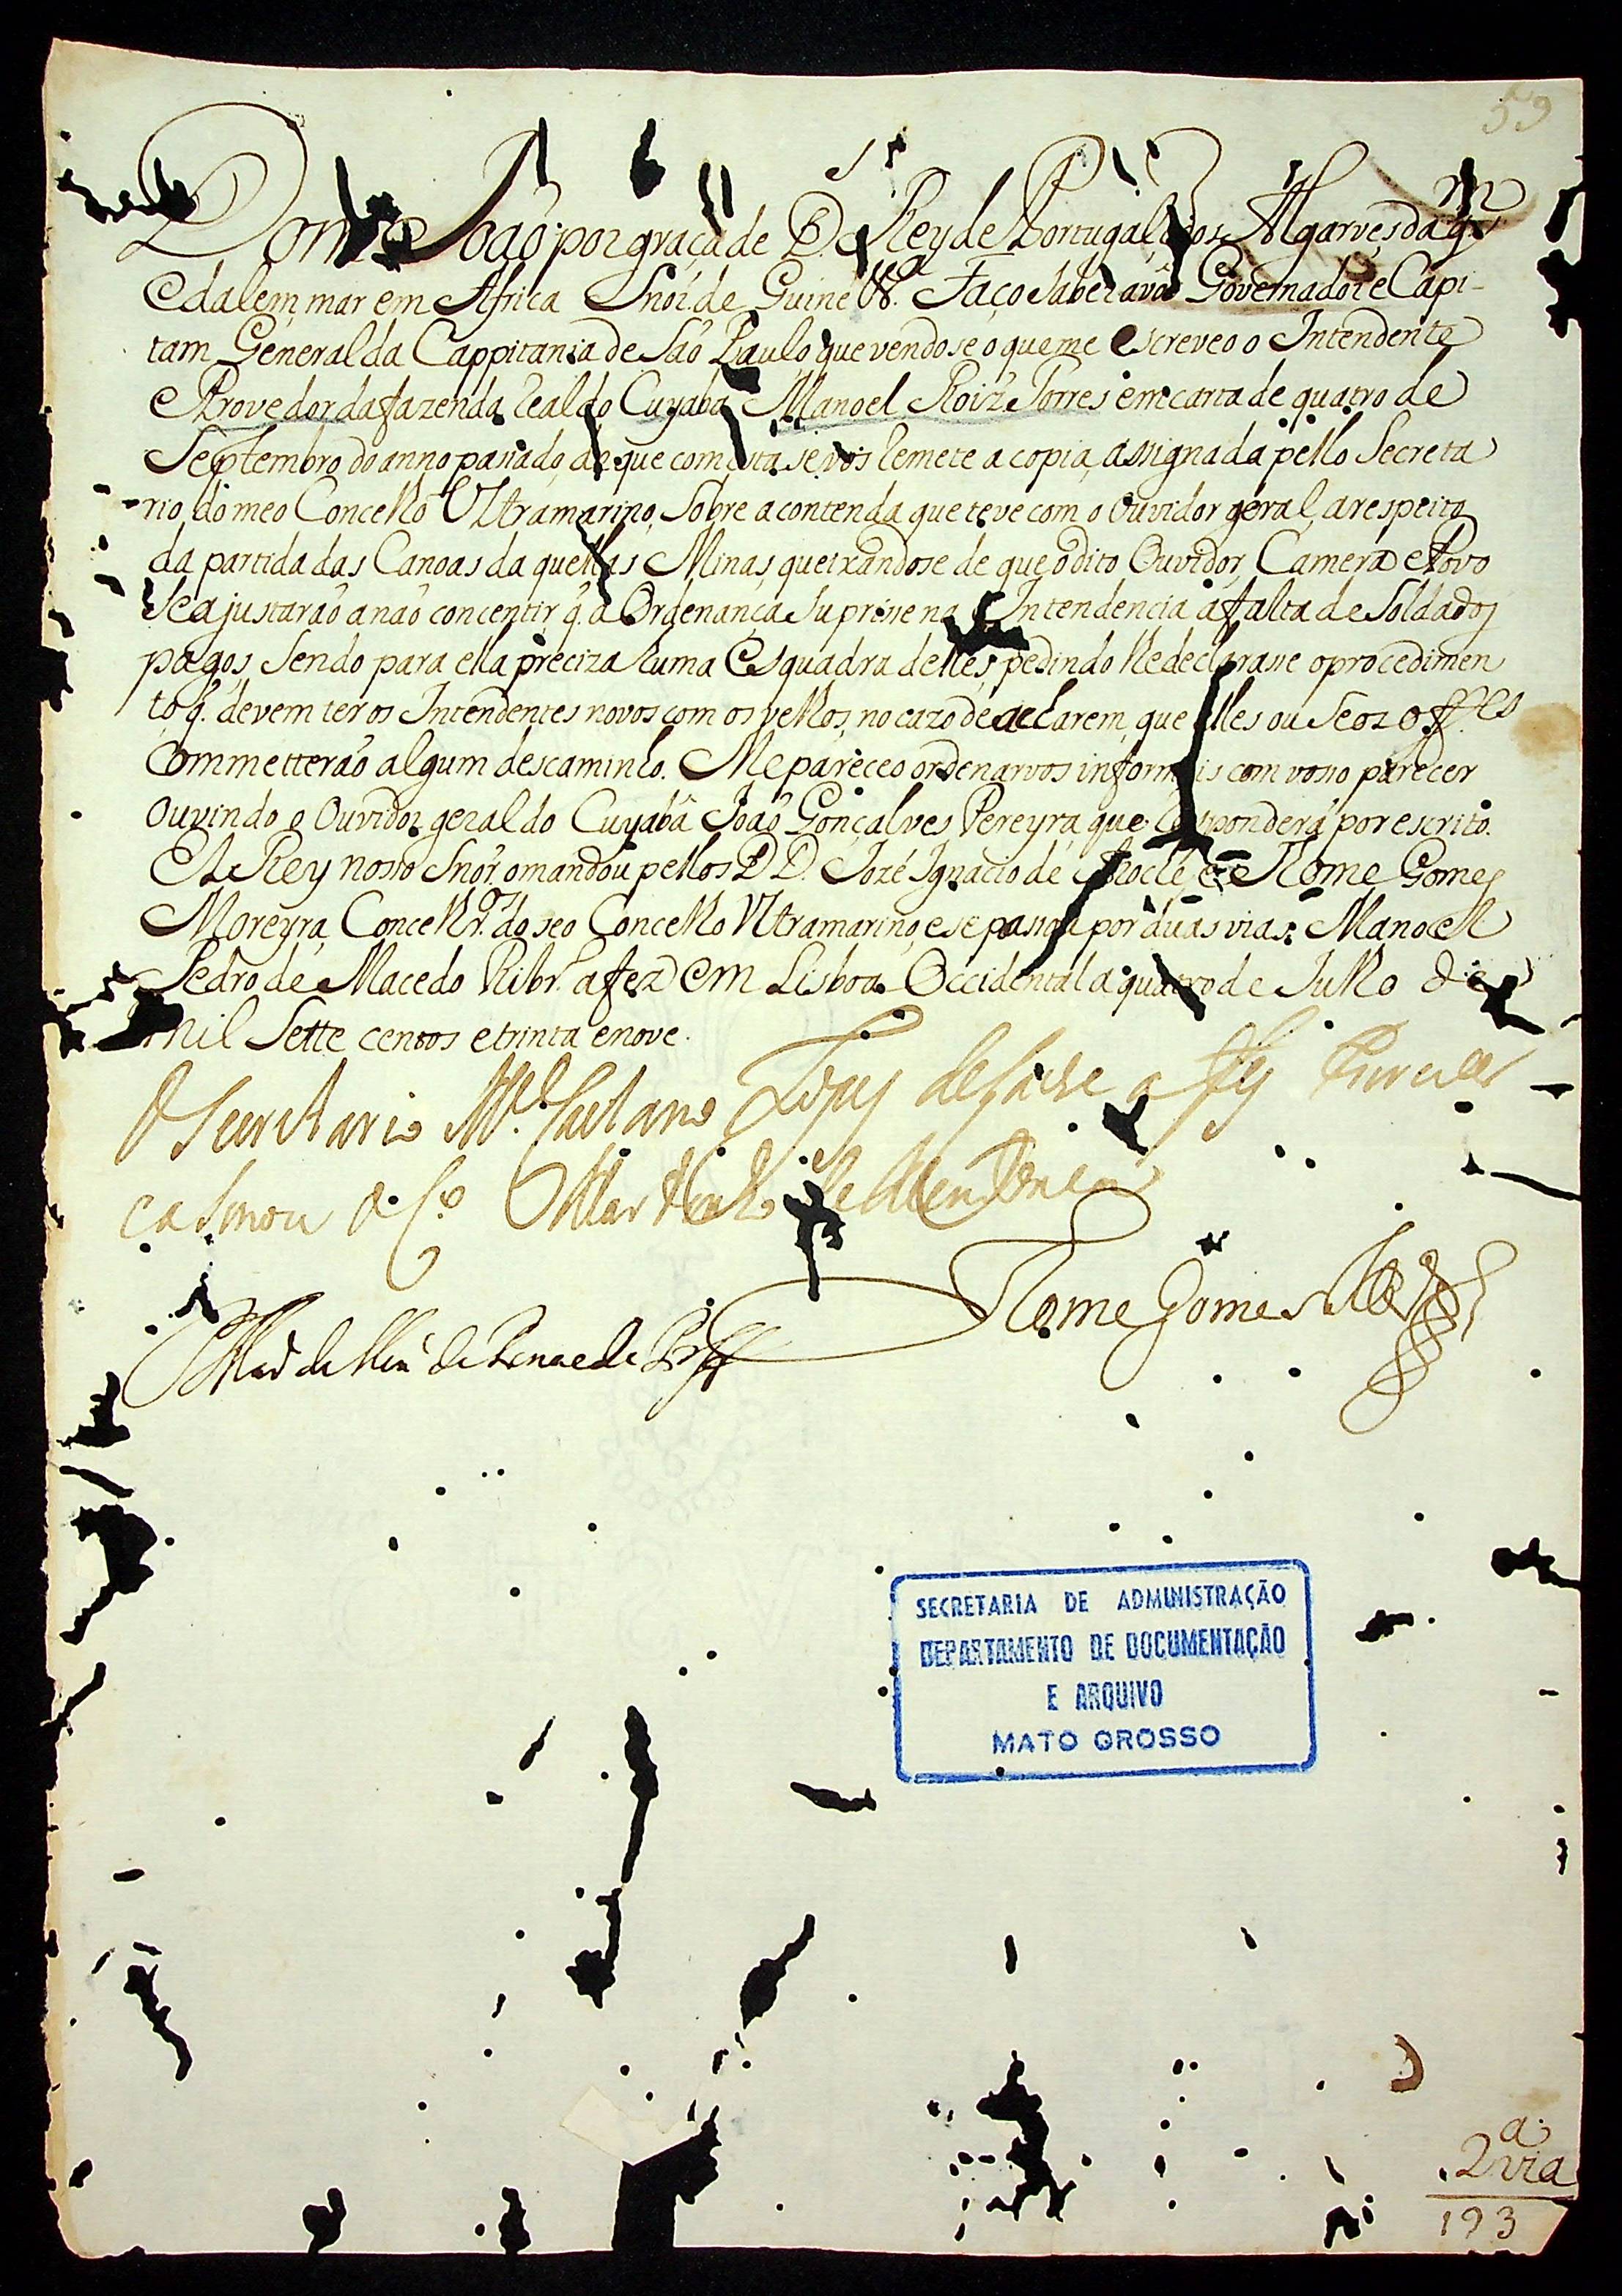 59
Dom João por graça de D.s Rey de Portugal e dos Algarves daq.m
e dalem mar em Africa Snor. de Guiné &.a Faço saber a vôs Governador e Capi-
tam General da Cappitania de São Paulo que vendose o que me escreveo o Intendente
e Provedor da fazenda Real do Cuyabá Manoel Roiz Torres em carta de quatro de
Septembro do anno passado, de que com esta se vos remete a copia, assignada pello Secreta
rio do meo Concelho Ultramarino, Sobre a contenda que teve com o Ouvidor geral, a respeito
da partida das Canoas da quellas Minas, queixandose de que o dito Ouvidor, Camera e Povo
se ajustarão a não concentir q. a Ordenança suprisse na Intendencia a falta de Soldados
pagos, sendo para ella preciza huma Esquadra delles, pedindo lhe declarasse o procedimen
to q. devem ter os Intendentes novos com os velhos, no cazo de acharem, que elles ou seos off.es
Commetterão algum descaminho. Me pareceo ordenarvos informeis com vosso parecer
ouvindo o Ouvidor geral do Cuyabâ João Gonçalves Pereyra que responderá por escrito.
El Rey nosso Snor. o mandou pellos DD. Jozé Ignacio de Aroche e Thome Gomes
Moreyra, Concelhr.os do seo Concelho Ultramarino, e se passou por duas vias. Manoel
Pedro de Macedo Ribr.o a fez em Lisboa Occidental a quatro de Julho de
mil sette centos e trinta e nove.
O Secretario M.el Caetano Lopes de Lavre a fez escrever
Thome Gomes Mor.a
SECRETARIA DE ADMINISTRAÇÃO
DEPARTAMENTO DE DOCUMENTAÇÃO
E ARQUIVO
MATO GROSSO
2.a via
193